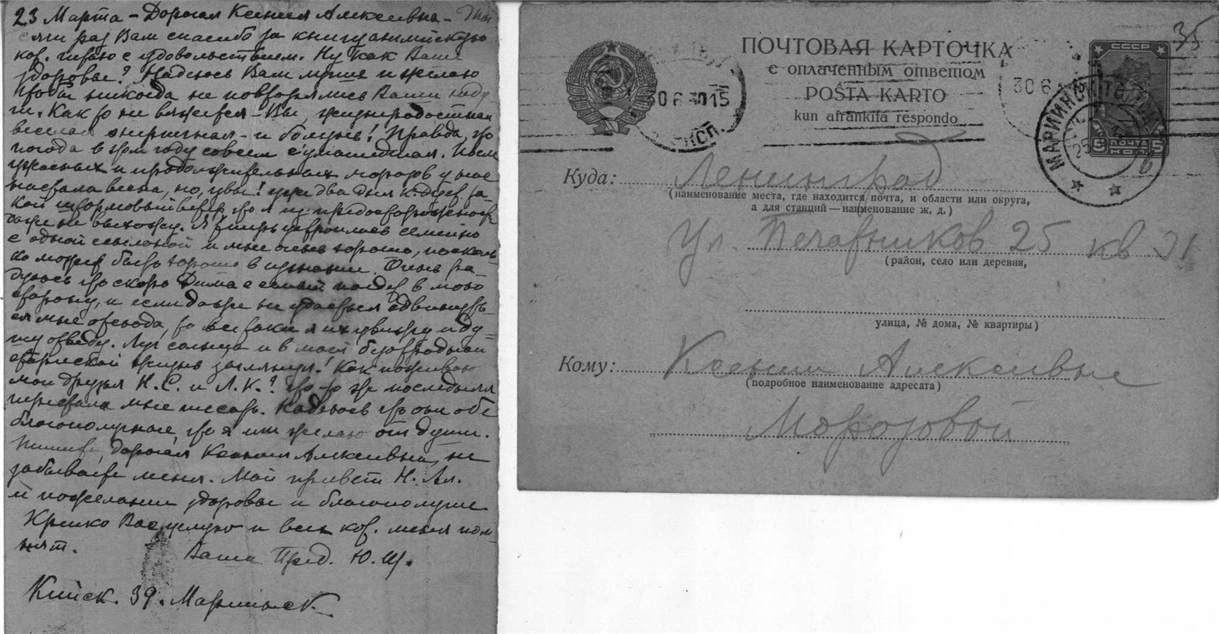 23 Марта – Дорогая Ксения Алексеевна –
раз Вам спасибо за книгу английскую
кот. читаю с удовольствием. Ну как Ваше
здоровье? Надеюсь Вам лучше и желаю
чтобы никогда не повторялись Ваши неду
ги. Как то не вяжется – Вы, жизнерадостная
веселая энергичная – и болезнь! Правда, что
погода в этом году совсем сумасшедшая. После
ужасных и продолжительных морозов у нас
настала весна, но, увы! уже два дня как дует та
кой штормовый ветер, что я из предосторожности
даже не выхожу. Я теперь устроилась семейно
с одной ссыльной и мне очень хорошо, посколь
ко может быть хорошо в изгнании. Очень ра
дуюсь что скоро Дима с семьей поедет в мою
сторону, и если даже не удастся сдвинуть
ся мне отсюда, то все таки я их увижу и ду
шу отведу. Луч солнца и в моей безотрадной
старческой жизни заглянул! Как поживают
мои друзья Н. С. и Л. К.? Что то же последняя
перестала мне писать. Надеюсь что они обе
благополучны, что я им желаю от души.
Пишите, дорогая Ксения Алексеевна, не
забывайте меня. Мой привет Н. Ал.
и пожелания здоровья и благополучия
Крепко Вас целую и всех кот. меня пом
нят.
Ваша Пред. Ю. Щ.
Кийск. 39. Мариинск
ПОЧТОВАЯ КАРТОЧКА
с оплаченным ответом
POŜTA KARTO
kun afrankita respondo
СССР
ПОЧТА
5 КОП. 5
35
30 6 30 15
30 6
МАРИИНСК
25
Куда: Ленинград
(наименование места, где находится почта, и области или округа,
а для станций — наименование ж. д.)
Ул. Печатников 25 кв 31
(район, село или деревня,
улица, № дома, № квартиры)
Кому: Ксении Алексеевне
(подробное наименование адресата)
Морозовой